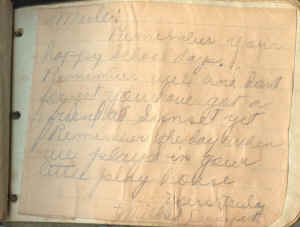 Remember your
happy school days.
Remember well and dont
forget you have got a
friend at Sunset yet
Remember the day when
we played in your
little play house
Yours truly